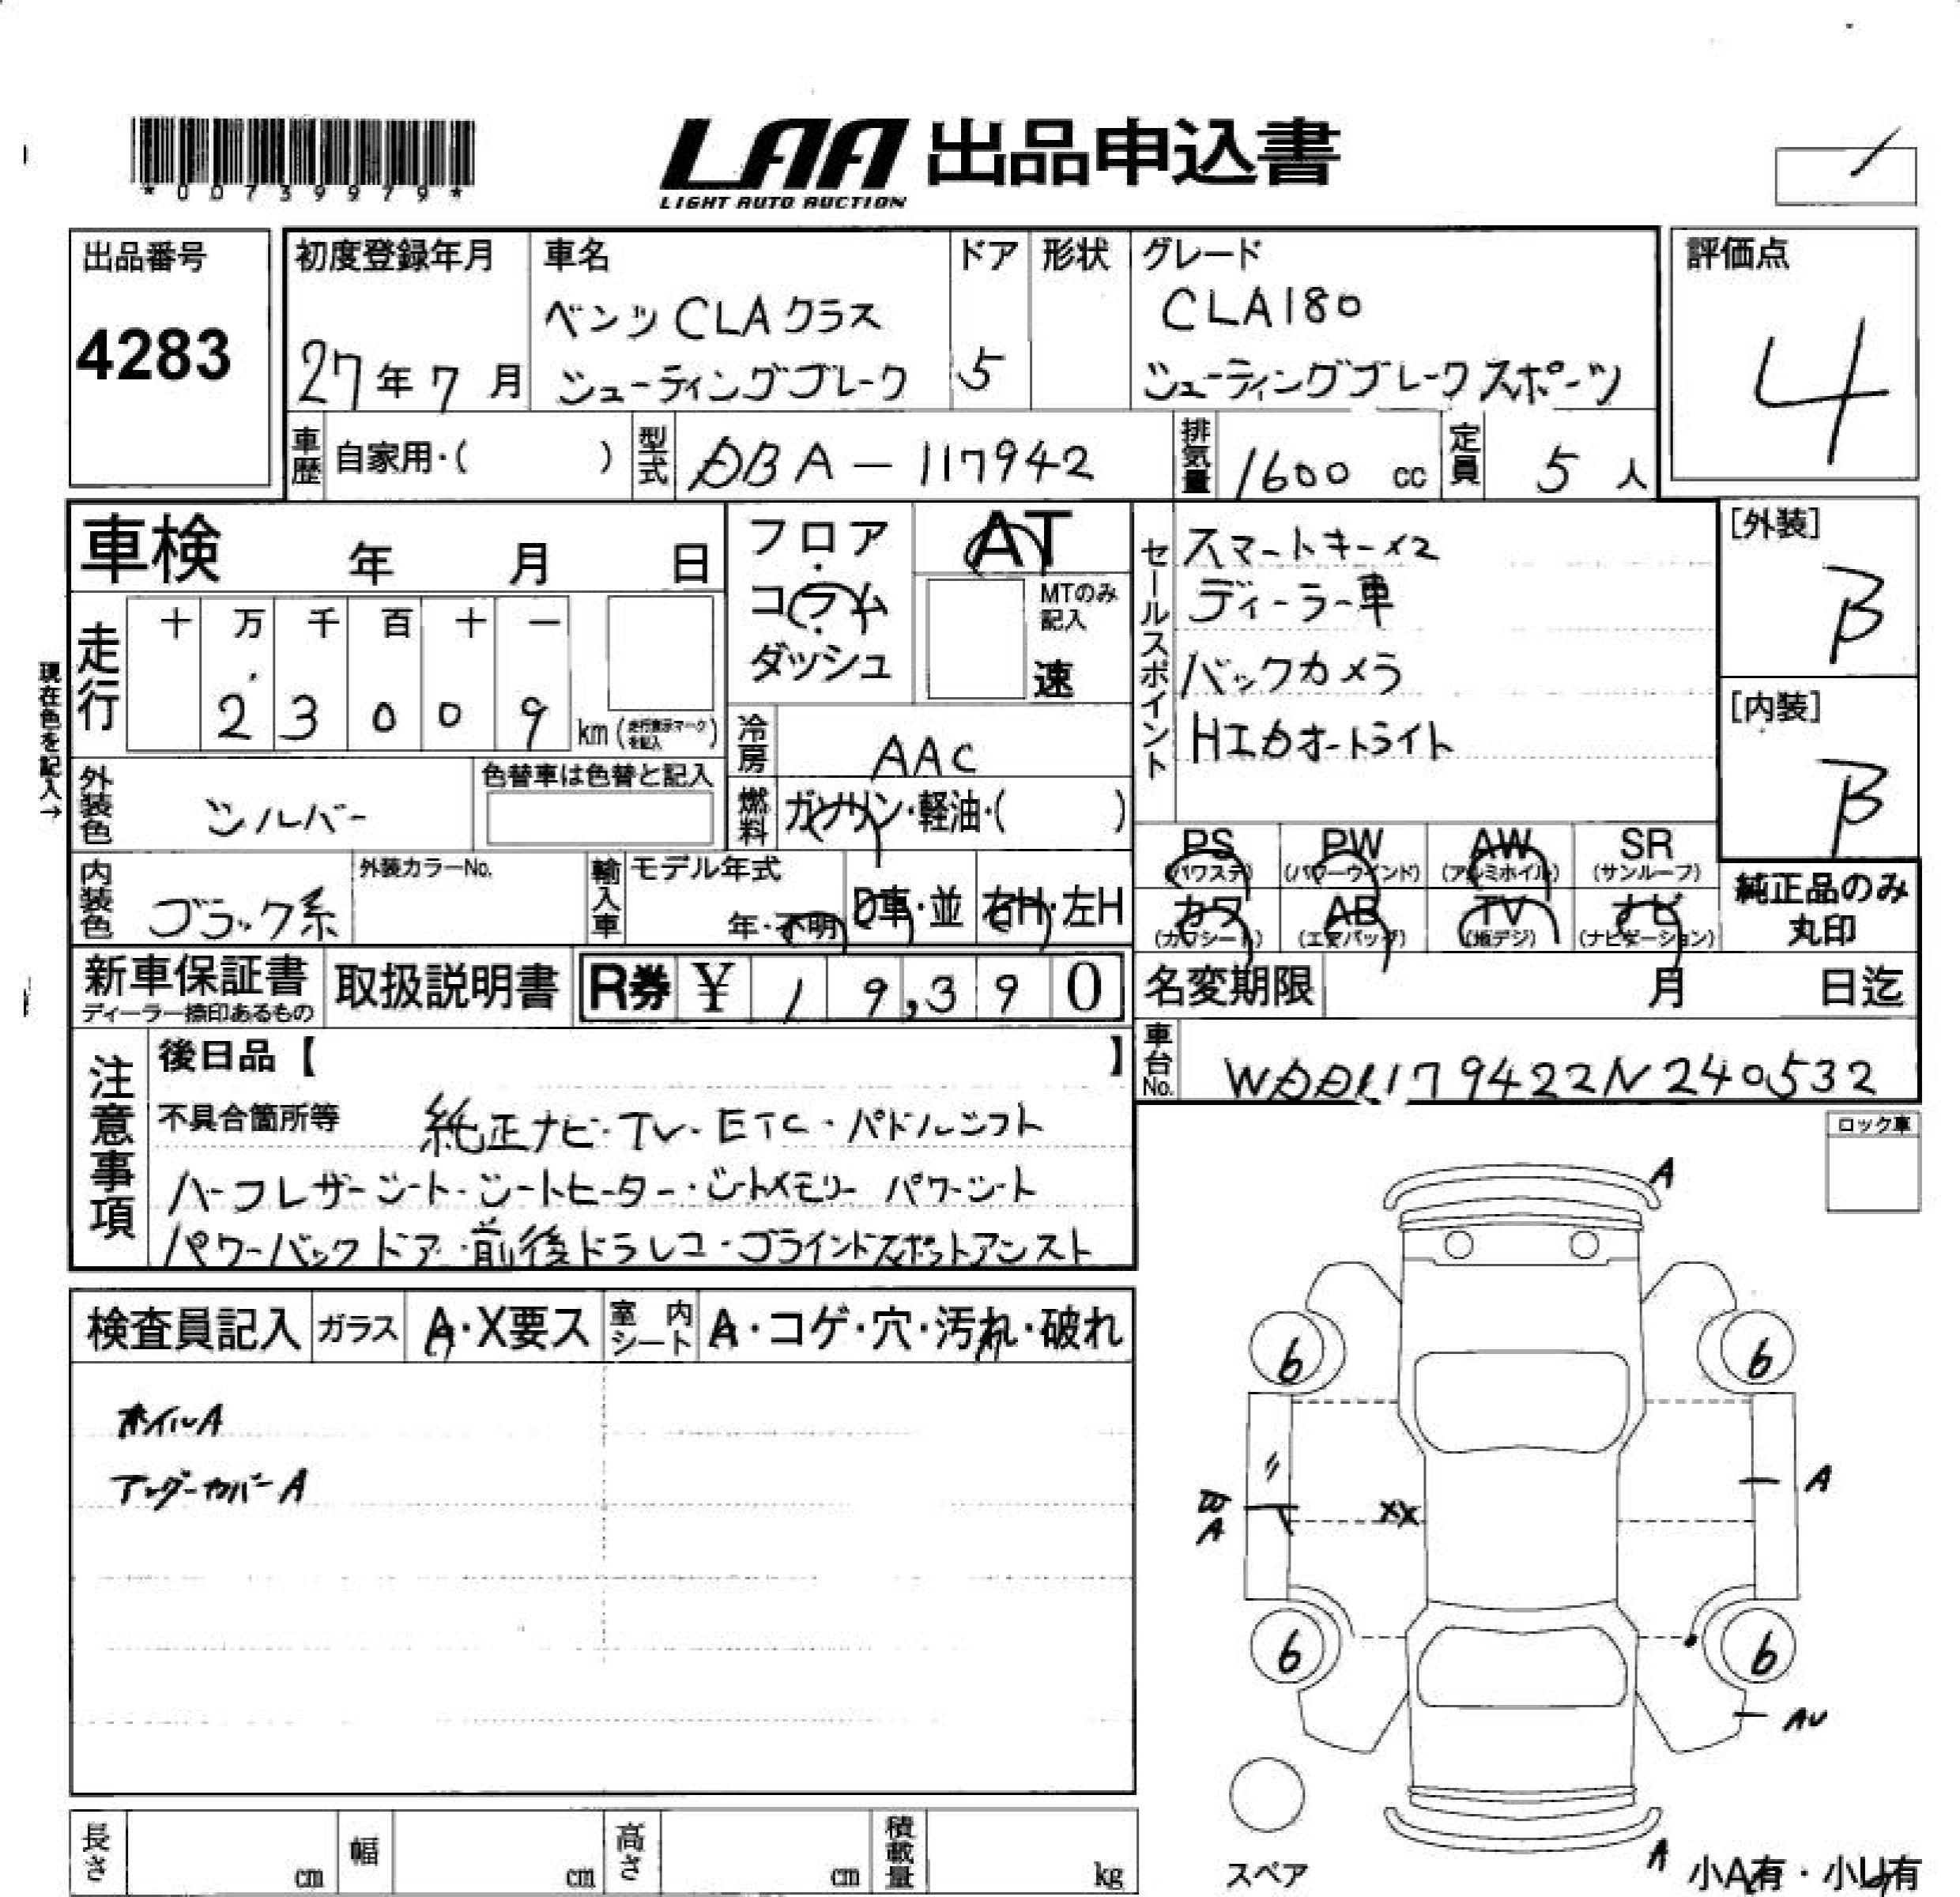 *00739979*
LAA 出品申込書
LIGHT AUTO AUCTION
出品番号
4283
初度登録年月
27年7月
車名
ベンツCLAクラス
シューティングブレーク
ドア
5
形状
グレード
CLA180
シューティングブレークスポーツ
評価点
4
車歴
自家用・( )
型式
DBA-117942
排気量
1600 cc
定員
5 人
車検 年 月 日
走行
十 万 千 百 十 一
2 3 0 0 9 km
現在色を記入→
フロア・コラム・ダッシュ
AT
MTのみ記入
速
冷房
AAC
燃料
ガソリン・軽油・( )
外装色
シルバー
色替車は色替と記入
内装色
ブラック系
外装カラーNo.
輸入車
モデル年式
年・不明
D車・並
右H・左H
セールスポイント
スマートキー×2
ディーラー車
バックカメラ
HIDオートライト
[外装]
B
[内装]
B
PS
(パワステ)
PW
(パワーウインド)
AW
(アルミホイル)
SR
(サンルーフ)
カワ
(カワシート)
AB
(エアバッグ)
TV
(地デジ)
ナビ
(ナビゲーション)
純正品のみ
丸印
新車保証書
ディーラー捺印あるもの
取扱説明書
R券 ¥ 19,390
名変期限 月 日迄
車台No.
WDD1179422N240532
注意事項
後日品【 】
不具合箇所等 純正ナビ・TV・ETC・パドルシフト
ハーフレザーシート・シートヒーター・シートメモリー パワーシート
パワーバックドア・前後ドラレコ・ブラインドスポットアシスト
検査員記入
ガラス
A・X要ス
室内シート
A・コゲ・穴・汚れ・破れ
ホイルA
アンダーカバーA
ロック車
A
6
6
A
XX
B
A
6
6
AU
スペア
A
小A有・小U有
長さ cm
幅 cm
高さ cm
積載量 kg